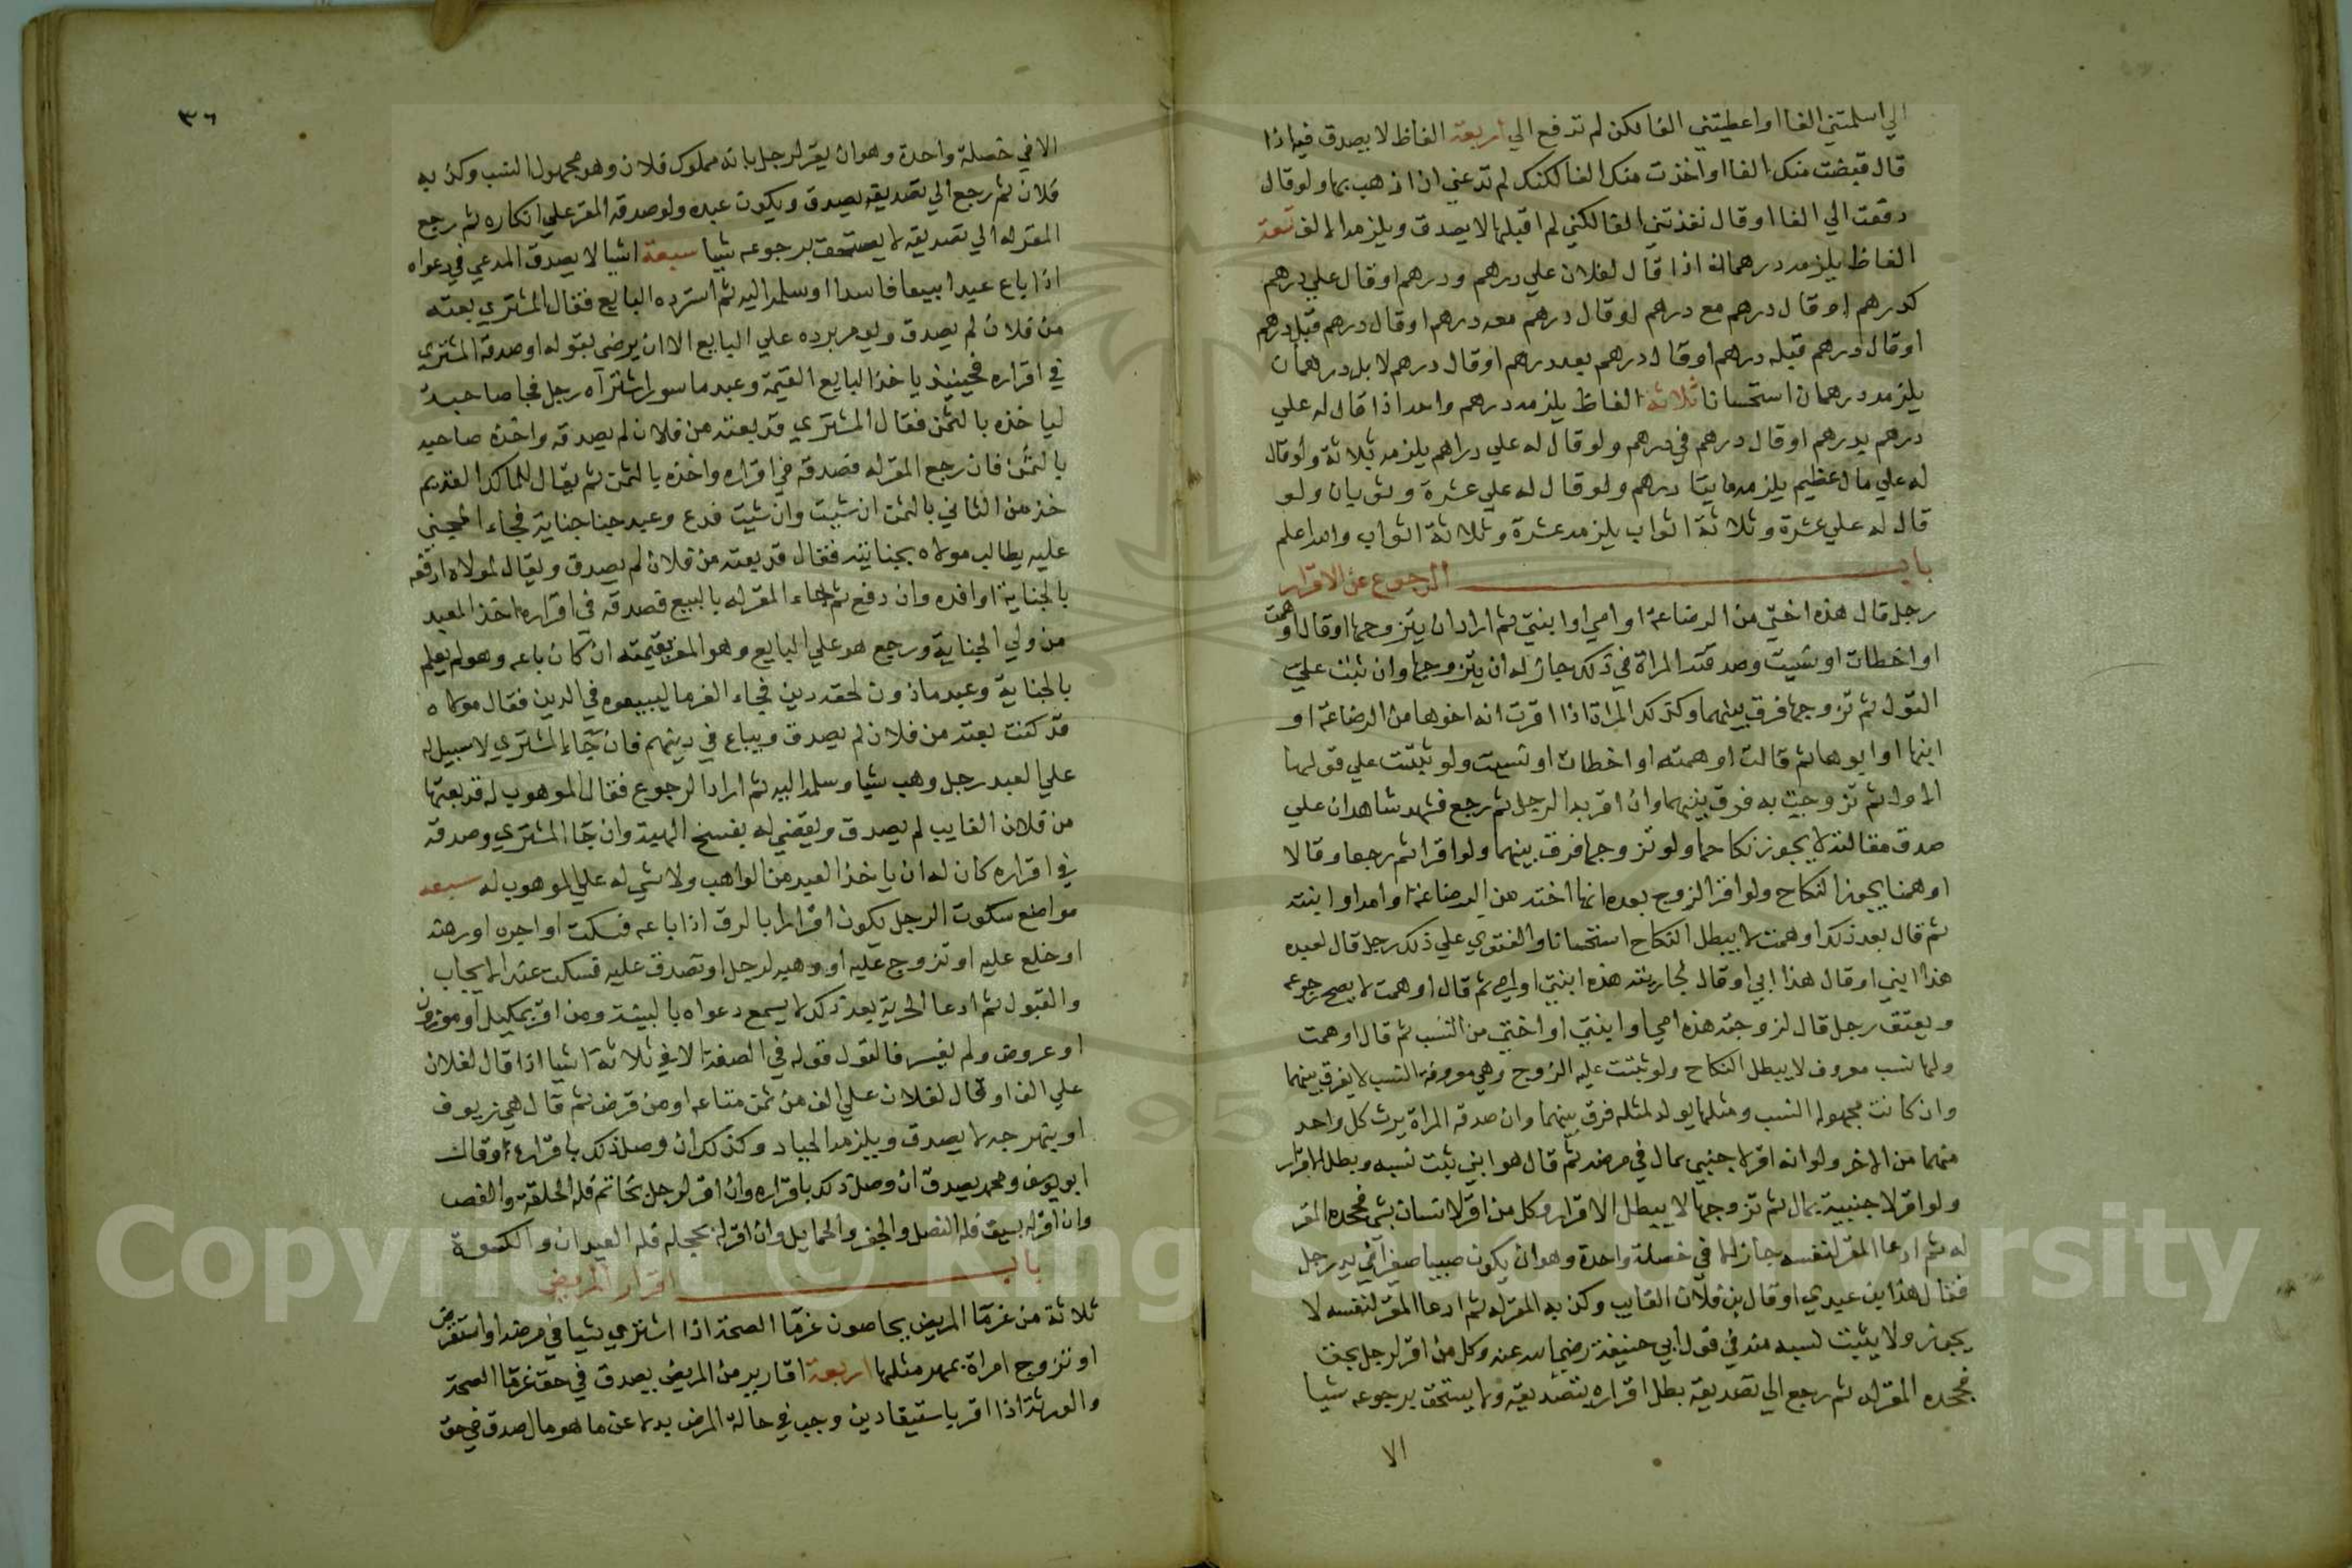 الي اسلمتني الفا او اعطيتني الفا لكن لم تدفع الي اربعة الفاظ لا يصدق فيه اذا
قال قبضت منك الفا او اخذت منك الفا لكنك لم تدعني ان اذهب بها ولو قال
دفعت الي الفا او قال نقدتني الفا لكني لم اقبلها لا يصدق ويلزمه الالف تسعة
الفاظ يلزمه درهمان اذا قال لفلان علي درهم ودرهم او قال علي درهم
كدرهم او قال درهم مع درهم او قال درهم معه درهم او قال درهم قبل درهم
او قال درهم قبله درهم او قال درهم بعد درهم او قال درهم لا بل درهمان
يلزمه درهمان استحسانا ثلاثة الفاظ يلزمه درهم واحد اذا قال له علي
درهم بدرهم او قال درهم في درهم ولو قال له علي دراهم يلزمه ثلاثة ولو قال
له علي مال عظيم يلزمه مايتا درهم ولو قال له علي عشرة وثوبان ولو
قال له علي عشرة وثلاثة اثواب يلزمه عشرة وثلاثة اثواب والله اعلم
باب الرجوع عن الاقرار
رجل قال هذه اختي من الرضاعة او امي او ابنتي ثم اراد ان يتزوجها وقال اوهمت
او اخطات او نسيت وصدقته المراة في ذلك جاز له ان يتزوجها وان ثبت علي
القول ثم تزوجها فرق بينهما وكذلك المراة اذا اقرت انه اخوها من الرضاعة او
ابنها او ابوها ثم قالت اوهمت او اخطات او نسيت ولو ثبتت علي قولها
الاول ثم تزوجت به فرق بينهما وان اقر به الرجل ثم رجع فشهد شاهدان علي
صدق مقالته لا يجوز نكاحها ولو تزوجها فرق بينهما ولو اقرا ثم رجعا وقالا
اوهمنا يجوز النكاح ولو اقر الزوج بعده انها اخته من الرضاعة او امه او ابنته
ثم قال بعد ذلك اوهمت لا يبطل النكاح استحسانا والفتوي علي ذلك رجل قال لعبده
هذا ابني او قال هذا ابي او قال لجاريته هذه ابنتي او امي ثم قال اوهمت لا يصح رجوعه
ويعتق رجل قال لزوجته هذه امي او ابنتي او اختي من النسب ثم قال اوهمت
ولها نسب معروف لا يبطل النكاح ولو ثبتت عليه الزوج وهي معروفة النسب لا يفرق بينهما
وان كانت مجهولة النسب ومثلها يولد لمثله فرق بينهما وان صدقه المراة يرث كل واحد
منهما من الاخر ولو انه اقر لاجنبي بمال في مرضه ثم قال هو ابني ثبت نسبه وبطل الاقرار
ولو اقر لاجنبية بمال ثم تزوجها لا يبطل الاقرار وكل من اقر لانسان بشي فجحده المقر
له ثم ادعا المقر لنفسه جاز الا في خصلة واحدة وهو ان يكون صبيا صغيرا في يد رجل
فقال هذا ابن عبدي او قال ابن فلان الغايب وكذبه المقر له ثم ادعا المقر لنفسه لا
يجوز ولا يثبت نسبه منه في قول ابي حنيفة رضي الله عنه وكل من اقر لرجل بحق
فجحده المقر له ثم رجع الي تصديقه بطل اقراره بتصديقه ولا يستحق برجوعه شيا
الا
٣٦
الا في خصلة واحدة وهو ان يقر لرجل بانه مملوك فلان وهو مجهول النسب وكذبه
فلان ثم رجع الي تصديقه يصدق ويكون عبده ولو صدقه المقر علي انكاره ثم رجع
المقر له الي تصديقه لا يستحق برجوعه شيا سبعة اشيا لا يصدق المدعي في دعواه
اذا باع عبدا بيعا فاسدا وسلمه اليه ثم استرده البايع فقال المشتري بعته
من فلان لم يصدق ويومر برده علي البايع الا ان يرضي بقوله او صدقه المشتري
في اقراره فحينيذ ياخذ البايع القيمة وعبد ماسور اشتراه رجل فجا صاحبه
لياخذه بالثمن فقال المشتري قد بعته من فلان لم يصدقه واخذه صاحبه
بالثمن فان رجع المقر له فصدقه في اقراره واخذه بالثمن ثم يقال للمالك القديم
خذ من الثاني بالثمن ان شيت وان شيت فدع وعبد جنا جناية فجاء المجني
عليه يطالب مولاه بجنايته فقال قد بعته من فلان لم يصدق ويقال لمولاه ادفعه
بالجناية او افده وان دفع ثم جاء المقر له بالبيع فصدقه في اقراره اخذ العبد
من ولي الجناية ورجع هو علي البايع وهو المقر بقيمته ان كان باعه وهو لم يعلم
بالجناية وعبد ماذون لحقه دين فجاء الغرما ليبيعوه في الدين فقال مولاه
قد كنت بعته من فلان لم يصدق ويباع في دينهم فان جاء المشتري لا سبيل له
علي العبد رجل وهب شيا وسلمه اليه ثم اراد الرجوع فقال الموهوب له قد بعتها
من فلان الغايب لم يصدق ويقضي له بفسخ الهبة وان جا المشتري وصدقه
في اقراره كان له ان ياخذ العبد من الواهب ولا شي له علي الموهوب له سبعة
مواضع سكوت الرجل يكون اقرارا بالرق اذا باعه فسكت او اجره او رهنه
او خلع عليه او تزوج عليه او وهبه لرجل او تصدق عليه فسكت عند الايجاب
والقبول ثم ادعا الحرية بعد ذلك لا يسمع دعواه بالبينة ومن اقر بمكيل او موزون
او عروض ولم يفسر فالقول قوله في الصفة الا في ثلاثة اشيا اذا قال لفلان
علي الف او قال لفلان علي الف من ثمن متاعه او من قرض ثم قال هي زيوف
او بنهرجة لا يصدق ويلزمه الجياد وكذلك ان وصل ذلك باقراره وقال
ابو يوسف ومحمد يصدق ان وصل ذلك باقراره وان اقر لرجل بخاتم فله الحلقة والفص
وان اقر له بسيف فله النصل والجفن والحمايل وان اقر له بحجلة فله العيدان والكسوة
باب اقرار المريض
ثلاثة من غرما المريض يحاصون غرما الصحة اذا اشتري شيا في مرضه او استقرض
او تزوج امراة بمهر مثلها اربعة اقارير من المريض يصدق في حق غرما الصحة
والورثة اذا اقر باستيفا دين وجب في حالة المرض بدلا عن ما هو مال صدق في حق